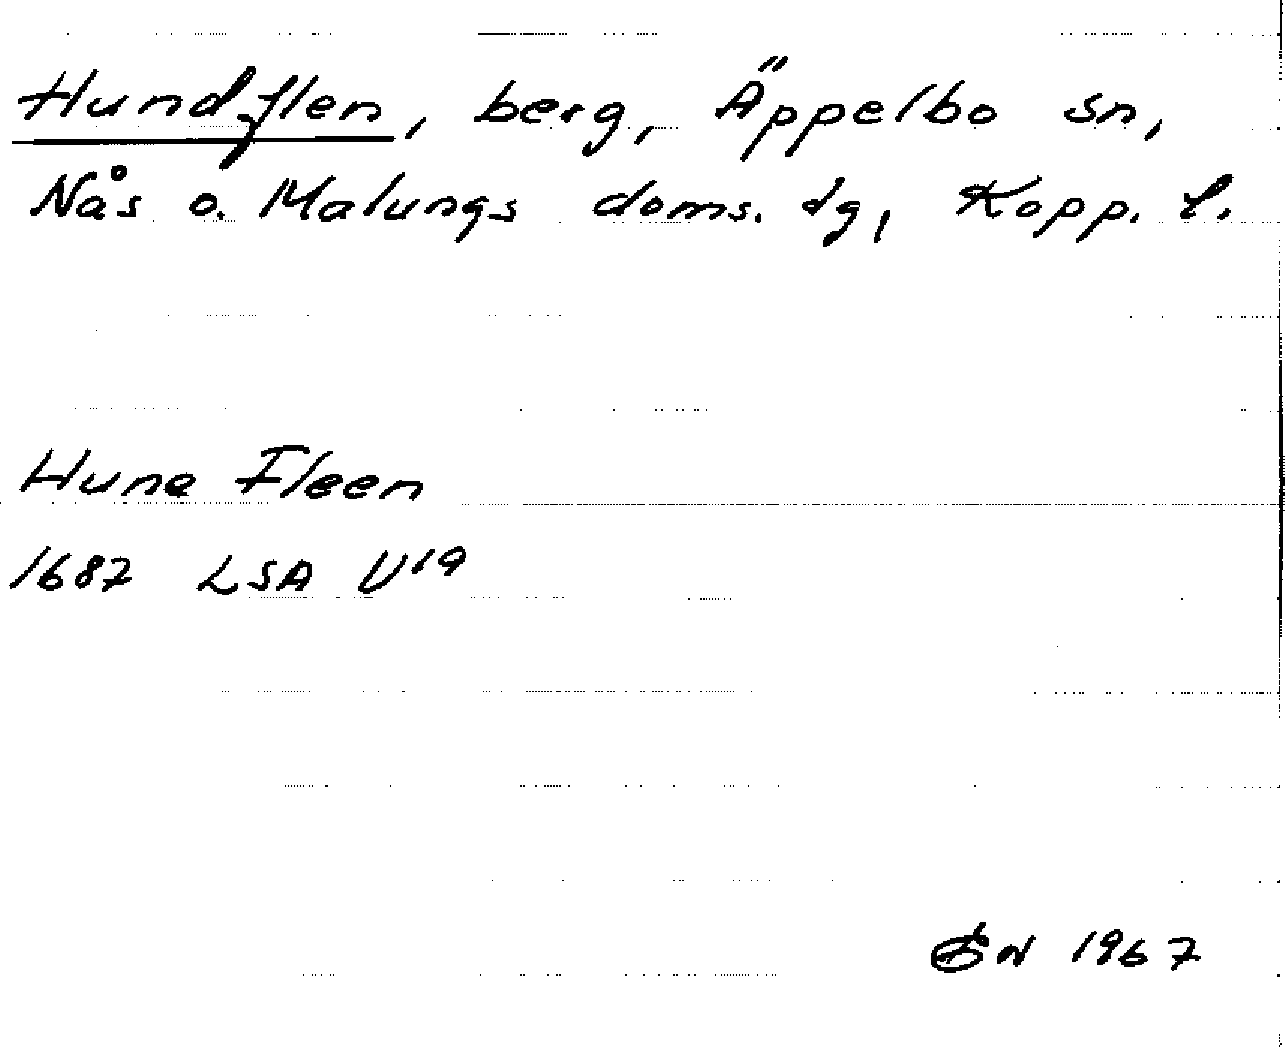 Hundflen, berg, Äppelbo sn,
Nås o. Malungs doms. dg, Kopp. l.
Huna Fleen
1687 LSA U19
1967